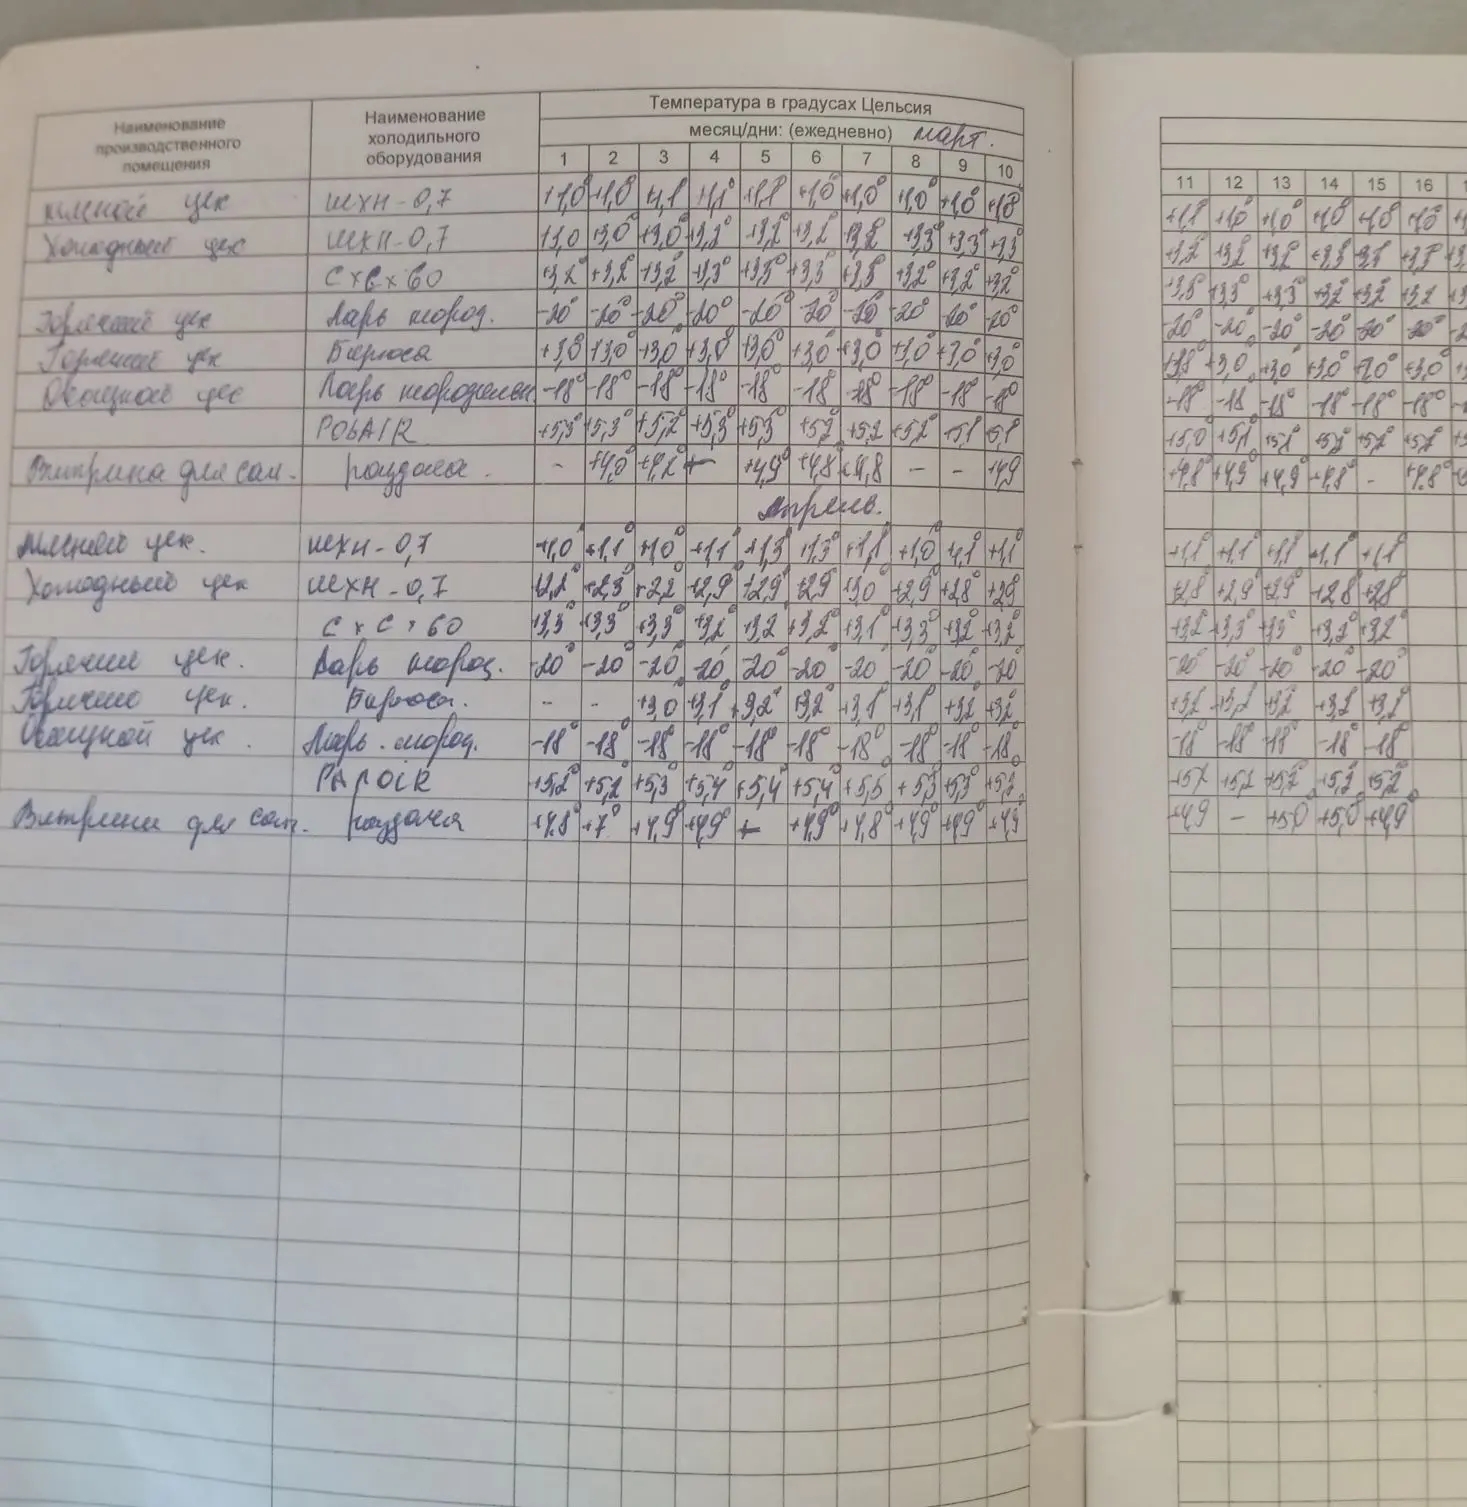 Наименование производственного помещения
Наименование холодильного оборудования
Температура в градусах Цельсия
месяц/дни: (ежедневно) март.
1 2 3 4 5 6 7 8 9 10 11 12 13 14 15 16
мясной цех ШХН-0,7 +1,0° +1,0° +1,1 +1,1° +1,1 +1,0° +1,0° +1,0° +1,0° +1,0° +1,1° +1,0° +1,0° +1,0° +1,0° +1,0°
Холодный цех ШХН-0,7 +3,0 +3,0° +3,0° +3,2° +3,2° +3,2° +3,2° +3,3° +3,3° +3,3° +3,2° +3,2 +3,2 +3,3 +3,3
С х С х 60 +3,2° +3,2° +3,2° +3,3° +3,3° +3,3° +3,3° +3,2° +3,2° +3,2° +3,3° +3,3° +3,3° +3,2° +3,2 +3,2
Горячий цех Ларь мороз. -20° -20° -20° -20° -20° -20° -20° -20° -20° -20° -20° -20° -20° -20° -20° -20°
Горячий цех Бирюса +3,0° +3,0° +3,0 +3,0° +3,0° +3,0° +3,0° +3,0° +3,0° +3,0° +3,0 +3,0 +3,0° +3,0°
Овощной цех Ларь морозильн -18° -18° -18° -18° -18° -18 -18° -18° -18° -18° -18° -18 -18° -18° -18° -18°
POLAIR +5,3° +5,3° +5,2° +5,3° +5,3 +5,2 +5,2 +5,2° +5,1 +5,1 +5,0° +5,1 +5,2° +5,2° +5,2° +5,2°
Витрина для сал. раздача. - +4,0° +4,2° - +4,9° +4,8 +4,8 - - +4,9 +4,8° +4,9 +4,9° +4,8° - +4,8°
Апрель.
мясной цех. ШХН-0,7 +1,0° +1,1° +1,0° +1,1° +1,3° +1,3° +1,1° +1,0° +1,1° +1,1° +1,1° +1,1° +1,1° +1,1° +1,1°
Холодный цех ШХН-0,7 +2,2° +2,3° +2,2 +2,9° +2,9° +2,9 +3,0 +2,9° +2,8° +2,9 +2,8° +2,9° +2,9° +2,8 +2,8
С х С х 60 +3,3° +3,3° +3,3° +3,2° +3,2 +3,2° +3,1° +3,3° +3,2° +3,2° +3,2° +3,3° +3,3° +3,2° +3,2°
Горячий цех. Ларь мороз. -20° -20° -20° -20° -20° -20° -20° -20° -20° -20° -20° -20° -20° -20° -20°
Горячий цех. Бирюса. - - +3,0 +3,1° +3,2° +3,2° +3,1° +3,1° +3,2° +3,2° +3,2° +3,2 +3,2° +3,2 +3,2°
Овощной цех. Ларь. мороз. -18° -18° -18° -18° -18° -18° -18° -18° -18° -18° -18° -18° -18° -18° -18°
РАПОIR +5,2° +5,2° +5,3° +5,4° +5,4° +5,4° +5,5 +5,3° +5,3° +5,2 +5,2 +5,2 +5,2° +5,2 +5,2
Витрина для сал. раздача +4,8° +7° +4,9° +4,9° - +4,9° +4,8° +4,9° +4,9° +4,9 +4,9 - +5,0 +5,0° +4,9